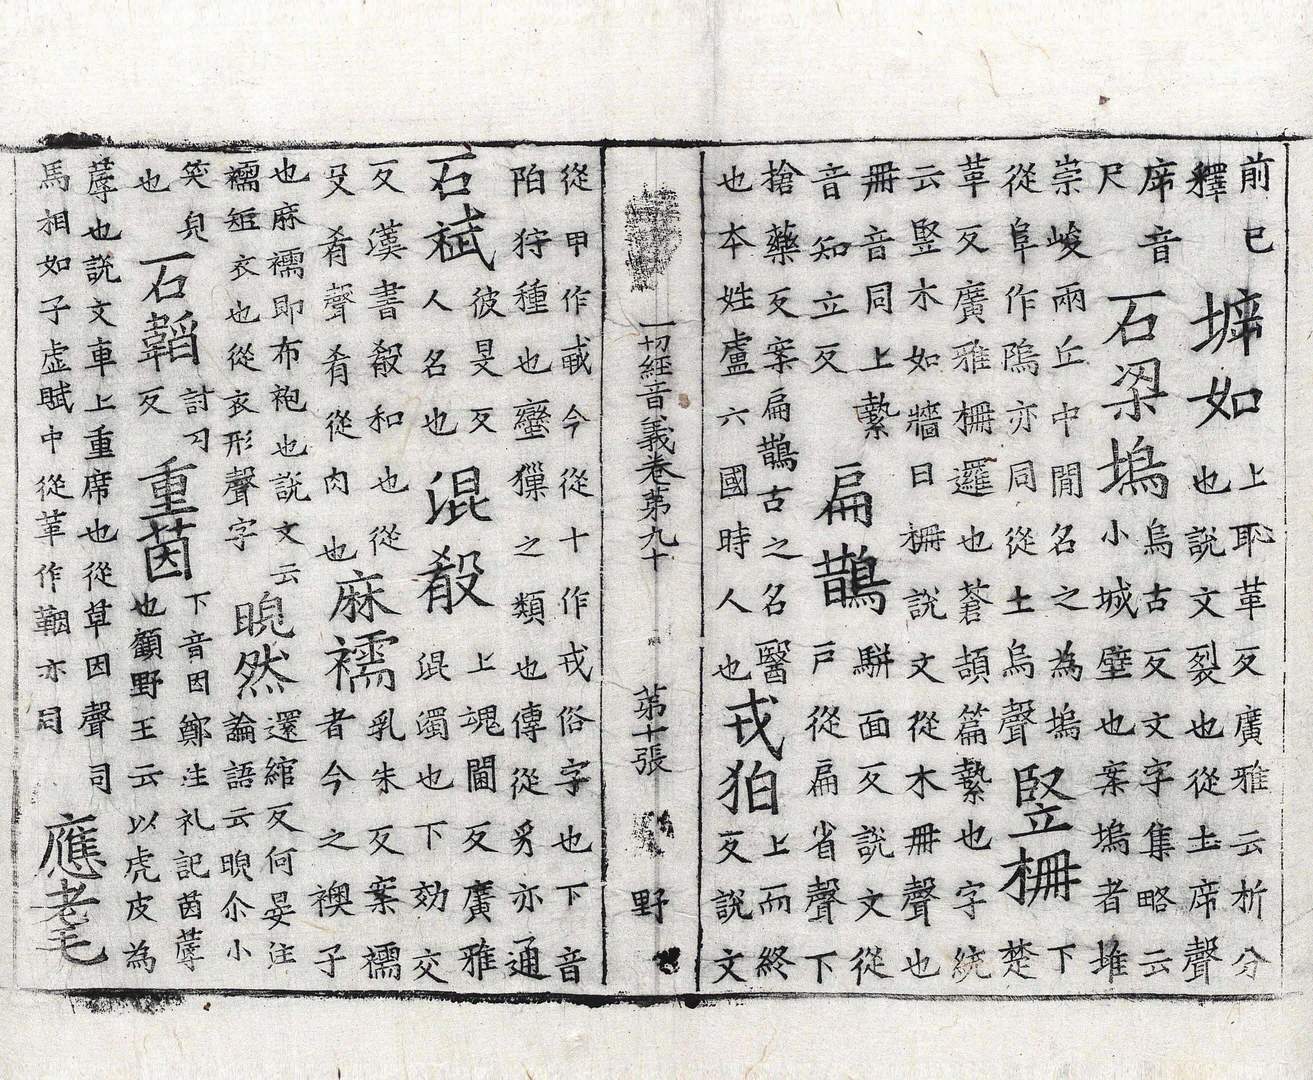 前已
釋
㙤如
上耻革反廣雅云析分
也說文裂也從土席聲
席音
尺
石梁塢
烏古反文字集略云
小城壁也案塢者堆
崇峻兩丘中間名之為塢下
從阜作隖亦同從土烏聲
竪柵
楚
革反廣雅柵邏也蒼頡篇縶也字統
云竪木如牆曰柵說文從木冊聲也
冊音同上縶
音知立反
扁鵲
駢面反說文從
戶從扁省聲下
搶藥反案扁鵲古之名醫
也本姓盧六國時人也
戎狛
上而終
反說文
一切經音義卷第九十 第十張 野
從甲作㦴今從十作戎俗字也下音
陌狩種也蠻獵之類也傳從豸亦通
石斌
彼旻反
人名也
混殽
上魂閫反廣雅
混濁也下効交
反漢書殽和也從
殳肴聲肴從肉也
麻襦
乳朱反案襦
者今之襖子
也麻襦即布袍也說文云
襦短衣也從衣形聲字
睨然
還綰反何晏注
論語云睨尒小
笑皃
也
石韜
討刀
反
重茵
下音因鄭注礼記茵蓐
也顧野王云以虎皮為
蓐也說文車上重席也從草因聲司
馬相如子虛賦中從革作鞇亦同
應耄